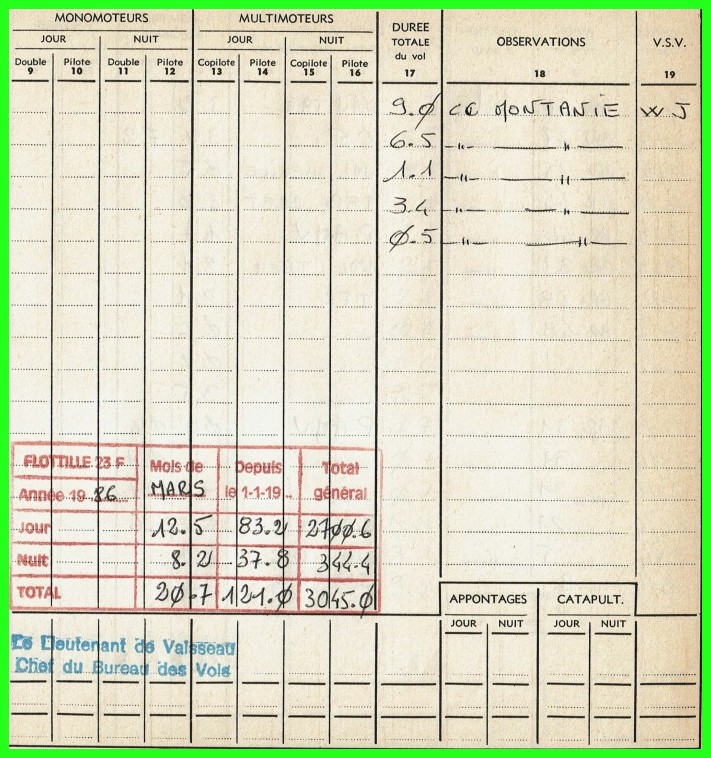 MONOMOTEURS MULTIMOTEURS DUREE TOTALE du vol OBSERVATIONS V.S.V.
JOUR NUIT JOUR NUIT
Double Pilote Double Pilote Copilote Pilote Copilote Pilote
9 10 11 12 13 14 15 16 17 18 19
9.0 CC MONTANIE W J
6.5 —"— —"—
1.1 —"— —"—
3.4 —"— —"—
0.5 —"— —"—
FLOTTILLE 23 F Mois de Depuis Total
Année 19 86 MARS le 1-1-19.. général
Jour 12.5 83.2 2700.6
Nuit 8.2 37.8 344.4
TOTAL 20.7 121.0 3045.0
APPONTAGES CATAPULT.
JOUR NUIT JOUR NUIT
Le Lieutenant de Vaisseau
Chef du Bureau des Vols